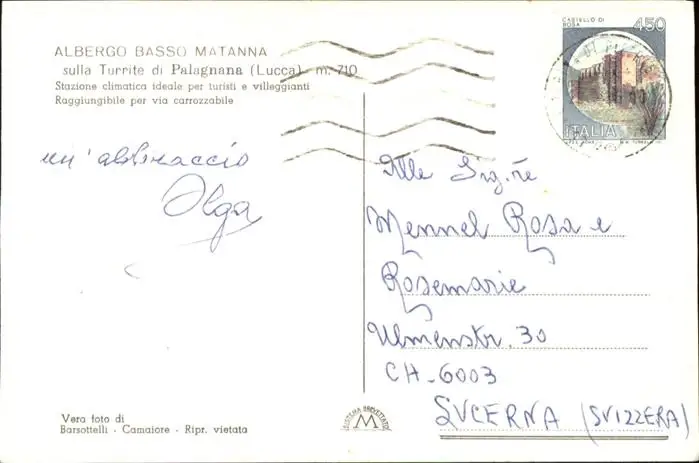 ALBERGO BASSO MATANNA
sulla Turrite di Palagnana (Lucca) m. 710
Stazione climatica ideale per turisti e villeggianti
Raggiungibile per via carrozzabile
un' abbraccio
Olga
CASTELLO DI
BOSA
450
ITALIA
Alle Sig.re
Mennel Rosa e
Rosemarie
Ulmenstr. 30
CH-6003
LUCERNA (SVIZZERA)
Vera foto di
Barsottelli - Camaiore - Ripr. vietata
SISTEMA BREVETTATO
M